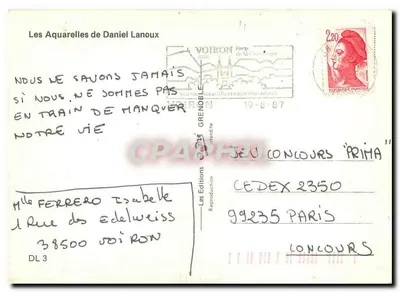 Les Aquarelles de Daniel Lanoux
VOIRON
19-8-87
2,20
NOUS NE SAVONS JAMAIS
SI NOUS NE SOMMES PAS
EN TRAIN DE MANQUER
NOTRE VIE
Mlle FERRERO Isabelle
1 Rue des Edelweiss
38500 VOIRON
DL 3
Les Editions
GRENOBLE
Reproduction interdite
JEU CONCOURS "PRIMA"
CEDEX 2350
99235 PARIS
CONCOURS